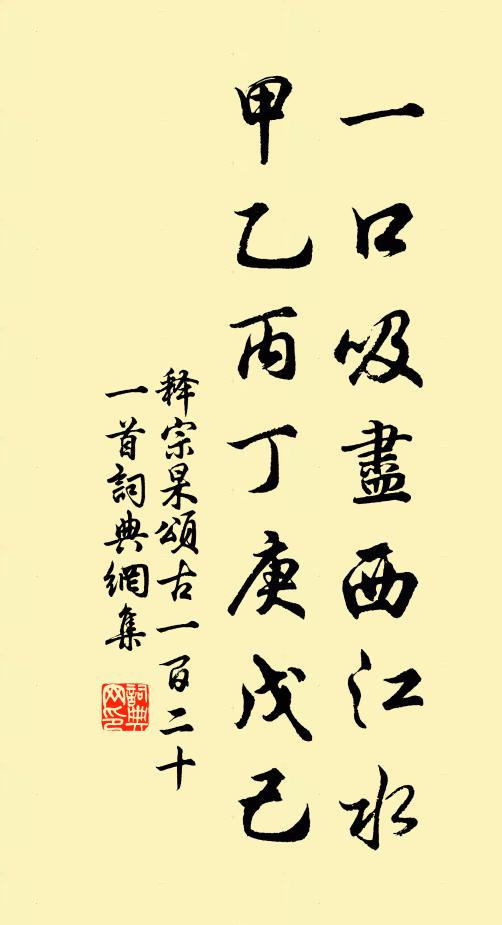 一口吸盡西江水
甲乙丙丁庚戊己
释宗杲頌古一百二十
一首詞典網集
詞典网印